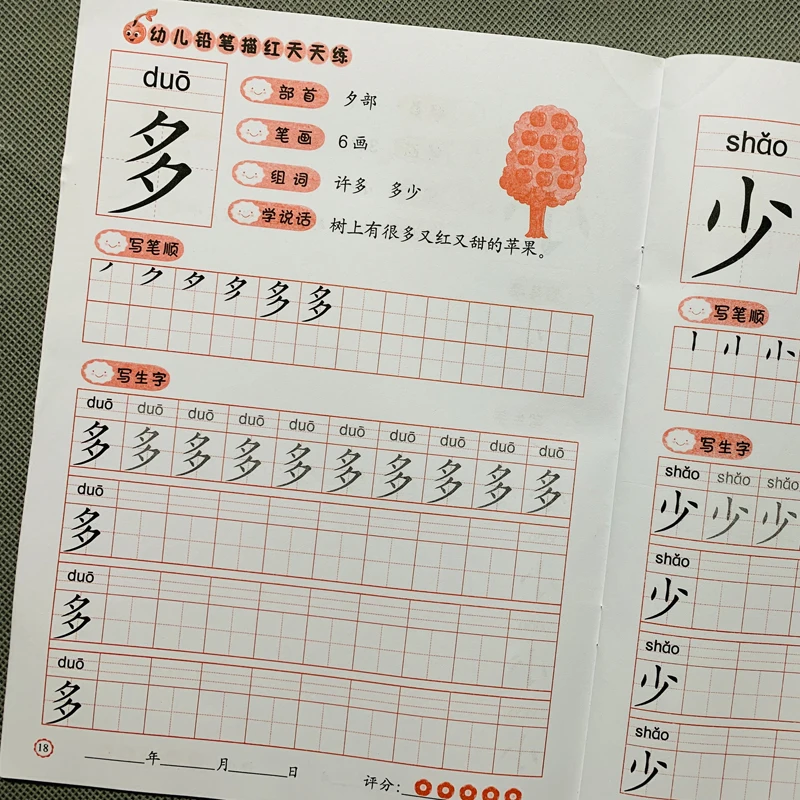 幼儿铅笔描红天天练
duō
多
部首 夕部
笔画 6画
组词 许多 多少
学说话 树上有很多又红又甜的苹果。
写笔顺
多
写生字
duō duō duō duō duō duō duō duō duō duō
多 多 多 多 多 多 多 多 多 多
duō
多
duō
多
duō
多
18
年 月 日
评分:
shǎo
少
写笔顺
小
写生字
shǎo shǎo shǎo
少 少 少
shǎo
少
shǎo
少
shǎo
少